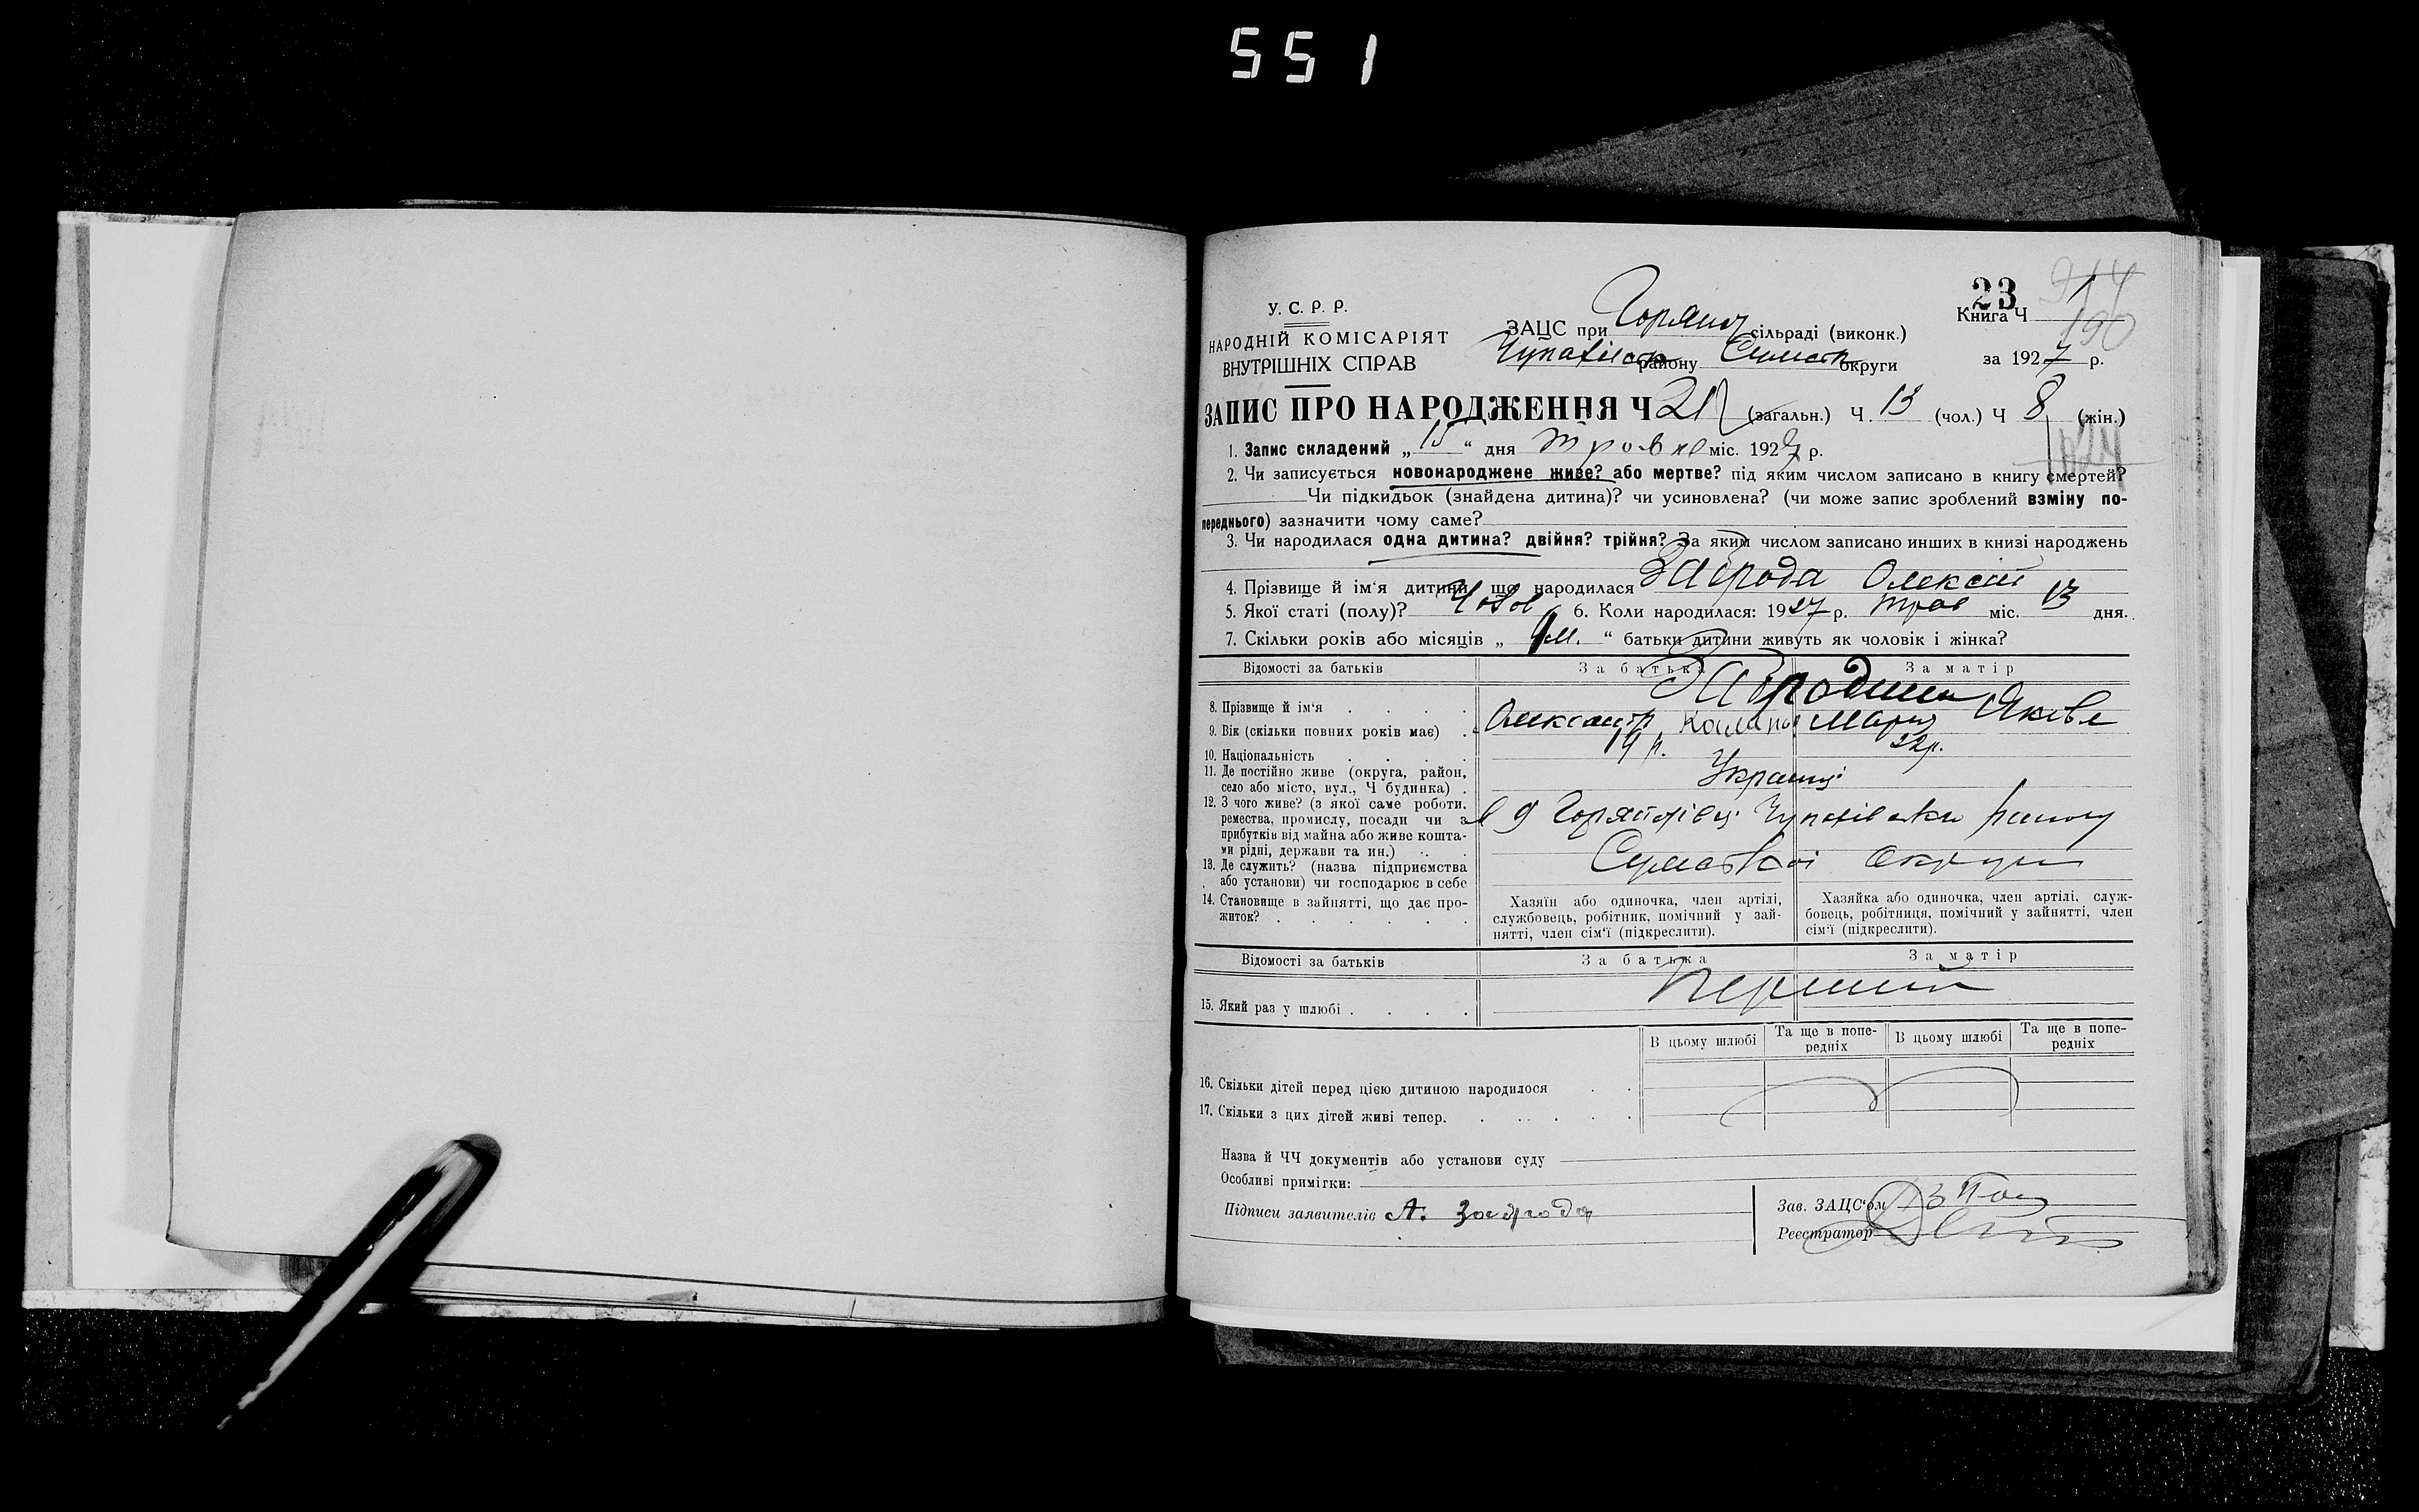 551
23
914
190
У. С. Р. Р.
НАРОДНІЙ КОМІСАРІЯТ
ВНУТРІШНІХ СПРАВ
ЗАЦС при сільраді (виконк.)
району округи
Книга Ч 1
за 1927 р.
ЗАПИС ПРО НАРОДЖЕННЯ Ч 21 (загальн.) Ч. 13 (чол.) Ч 8 (жін.)
1. Запис складений „15“ дня травня міс. 1927 р.
2. Чи записується новонароджене живе? або мертве? під яким числом записано в книгу смертей?
Чи підкидьок (знайдена дитина)? чи усиновлена? (чи може запис зроблений взміну по-
переднього) зазначити чому саме?
3. Чи народилася одна дитина? двійня? трійня? За яким числом записано инших в книзі народжень
4. Прізвище й ім‘я дитини, що народилася Заброда Олексій
5. Якої статі (полу)? Чолов 6. Коли народилася: 1927 р. трав міс. 13 дня.
7. Скільки років або місяців „ м. “ батьки дитини живуть як чоловік і жінка?
Відомості за батьків За батька За матір
8. Прізвище й ім‘я
Олександр Марія Яківл
9. Вік (скільки повних років має) 19 р. 22 р.
10. Національність Українці
11. Де постійно живе (округа, район,
село або місто, вул., Ч будинка)
12. З чого живе? (з якої саме роботи,
ремества, промислу, посади чи з
прибутків від майна або живе кошта-
ми рідні, держави та ин.)
Сумської округи
13. Де служить? (назва підприємства
або установи) чи господарює в себе
14. Становище в зайнятті, що дає про-
житок?
Хазяїн або одиночка, член артілі,
службовець, робітник, помічний у зай-
нятті, член сім‘ї (підкреслити).
Хазяйка або одиночка, член артілі, служ-
бовець, робітниця, помічний у зайнятті, член
сім‘ї (підкреслити).
Відомості за батьків За батька За матір
15. Який раз у шлюбі Перший
В цьому шлюбі Та ще в попе-
редніх В цьому шлюбі Та ще в попе-
редніх
16. Скільки дітей перед цією дитиною народилося
17. Скільки з цих дітей живі тепер.
Назва й ЧЧ документів або установи суду
Особливі примітки:
Підписи заявителів А. Заброда
Зав. ЗАЦС‘ом
Реєстратор